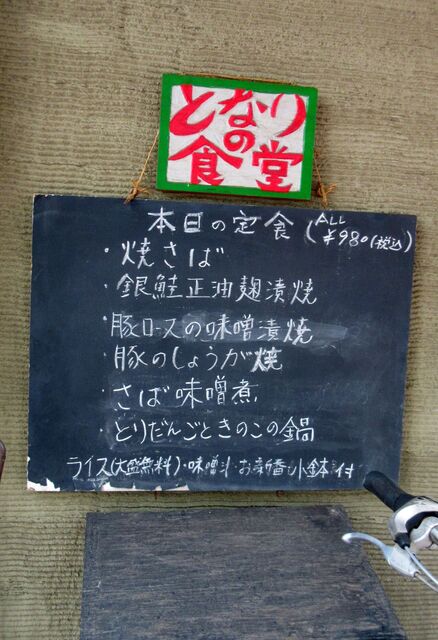 となり
の
食堂
本日の定食(ALL ¥980(税込)
・焼さば
・銀鮭正油麹漬焼
・豚ロースの味噌漬焼
・豚のしょうが焼
・さば味噌煮
・とりだんごときのこの鍋
ライス(大盛無料)・味噌汁・お新香・小鉢付